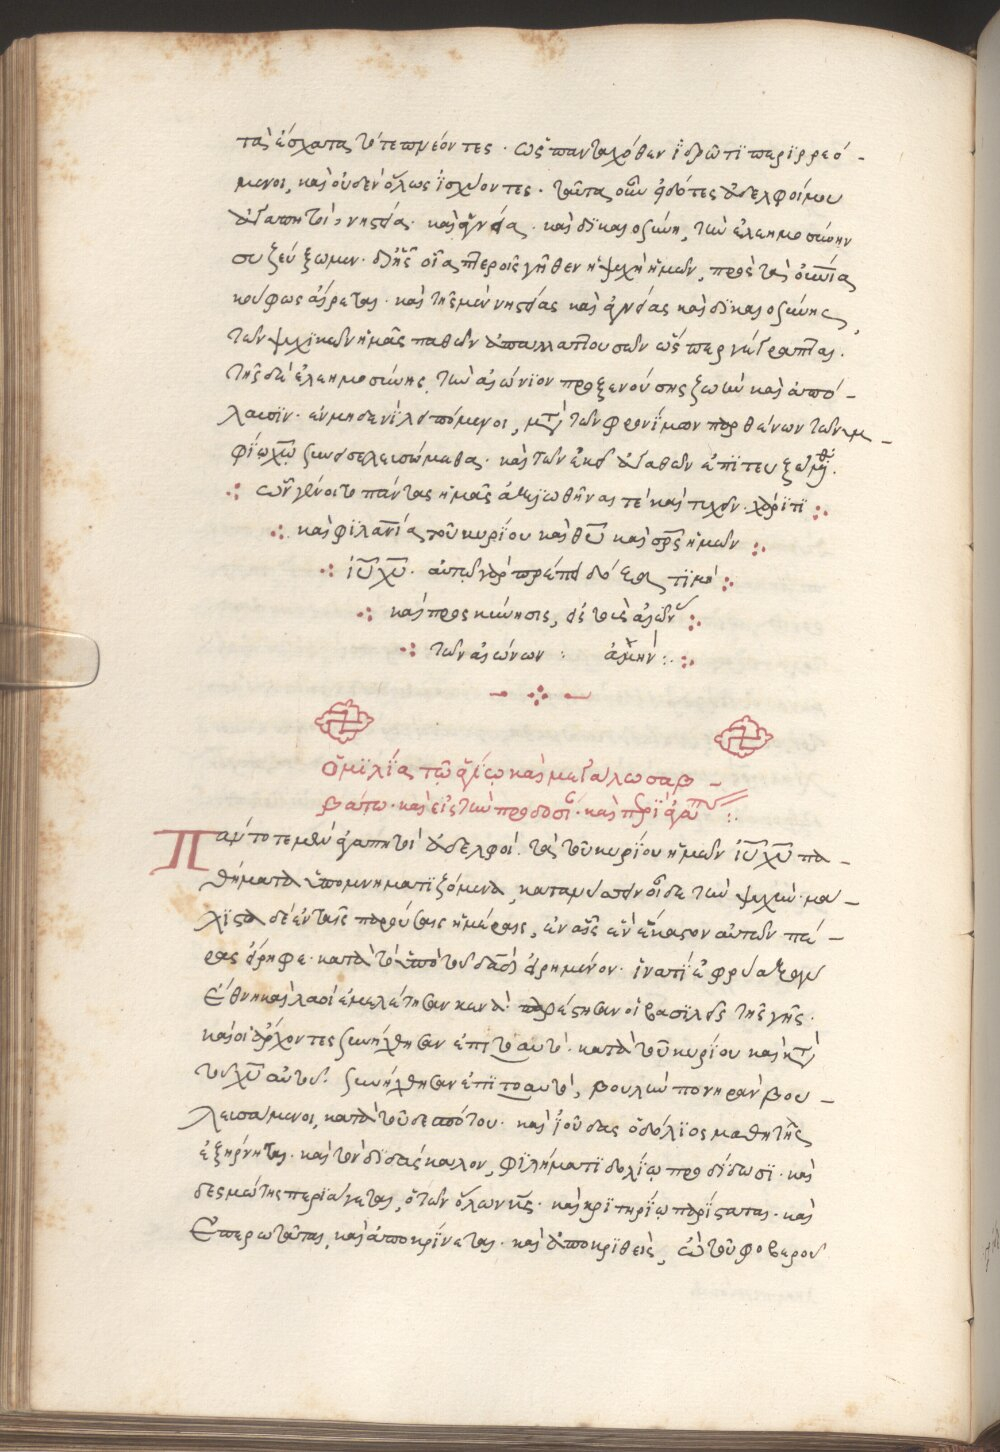 τὰς ἐσχάτας τότε πνέοντες. ὡς πανταχόθεν ἱδρῶτι περιρρεό-
μενοι, καὶ οὐδὲν ὅλως ἰσχύοντες. ταῦτα οὖν εἰδότες ἀδελφοί μου
ἀγαπητοὶ, νηστεία καὶ ἁγνεία καὶ δικαιοσύνη, τὴν ἐλεημοσύνην
συζεύξωμεν. δι' ἧς οἷα πτεροῖς γῆθεν ἡ ψυχὴ ἡμῶν, πρὸς τὰ οὐνια
κούφως αἴρεται. καὶ τῆς μὲν νηστείας καὶ ἁγνείας καὶ δικαιοσύνης,
τῶν ψυχικῶν ἡμᾶς παθῶν ἀπαλλαττουσῶν ὥσπερ γέγραπται.
τῆς δὲ ἐλεημοσύνης, τὴν αἰώνιον προξενούσης ζωὴν καὶ ἀπό-
λαυσιν. ἐν μηδενὶ λειπόμενοι, μετὰ τῶν φρονίμων παρθένων τῷ νυμ-
φίῳ χῷ συνεισελευσώμεθα. καὶ τῶν ἐκεῖ ἀγαθῶν ἐπιτευξώμεθα.
ὧν γένοιτο πάντας ἡμᾶς ἀξιωθῆναί τε καὶ τυχεῖν. χάριτι
καὶ φιλανίᾳ τοῦ κυρίου καὶ θυ καὶ σρς ἡμῶν
ἰυ χυ. αὐτῷ γὰρ πρέπει δόξα τιμὴ
καὶ προσκύνησις, εἰς τοὺς αἰῶνας
τῶν αἰώνων: ἀμήν:
Ὁμιλία τῷ ἁγίῳ καὶ μεγάλῳ σαβ-
βάτῳ. καὶ εἰς τὴν προδοσίαν
Πάντοτε μὲν ἀγαπητοὶ ἀδελφοὶ. τὰ τοῦ κυρίου ἡμῶν ἰυ χυ πα-
θήματα ὑπομνηματιζόμενα, κατανύττειν οἶδε τὴν ψυχὴν. μά-
λιστα δὲ ἐν ταῖς παρούσαις ἡμέραις, ἐν αἷς ἓν ἕκαστον αὐτῶν πέ-
ρας εἴρηφε. κατὰ τὸ ὑπὸ τοῦ δαδ εἰρημένον. ἱνατί ἐφρύαξαν
ἔθνη καὶ λαοὶ ἐμελέτησαν κενὰ. παρέστησαν οἱ βασιλεῖς τῆς γῆς.
καὶ οἱ ἄρχοντες συνήχθησαν ἐπὶ τὸ αὐτὸ. κατὰ τοῦ κυρίου καὶ κατὰ
τοῦ χυ αὐτοῦ. συνήχθησαν ἐπὶ τὸ αυτὸ, βουλὴν πονηρὰν βου-
λευσάμενοι, κατὰ τοῦ δεσπότου. καὶ ἰούδας ὁ δόλιος μαθητὴς
ἐξηρνῆται. καὶ τὸν διδάσκαλον, φιλήματι δολίῳ προδίδωσι. καὶ
δεσμώτης περιάγεται, ὁ τῶν ὅλων κς. καὶ κριτηρίῳ παρίσταται. καὶ
ἐπερωτᾶται, καὶ ἀποκρίνεται. καὶ ἀποκριθεὶς, ὢ τοῦ φοβεροῦ